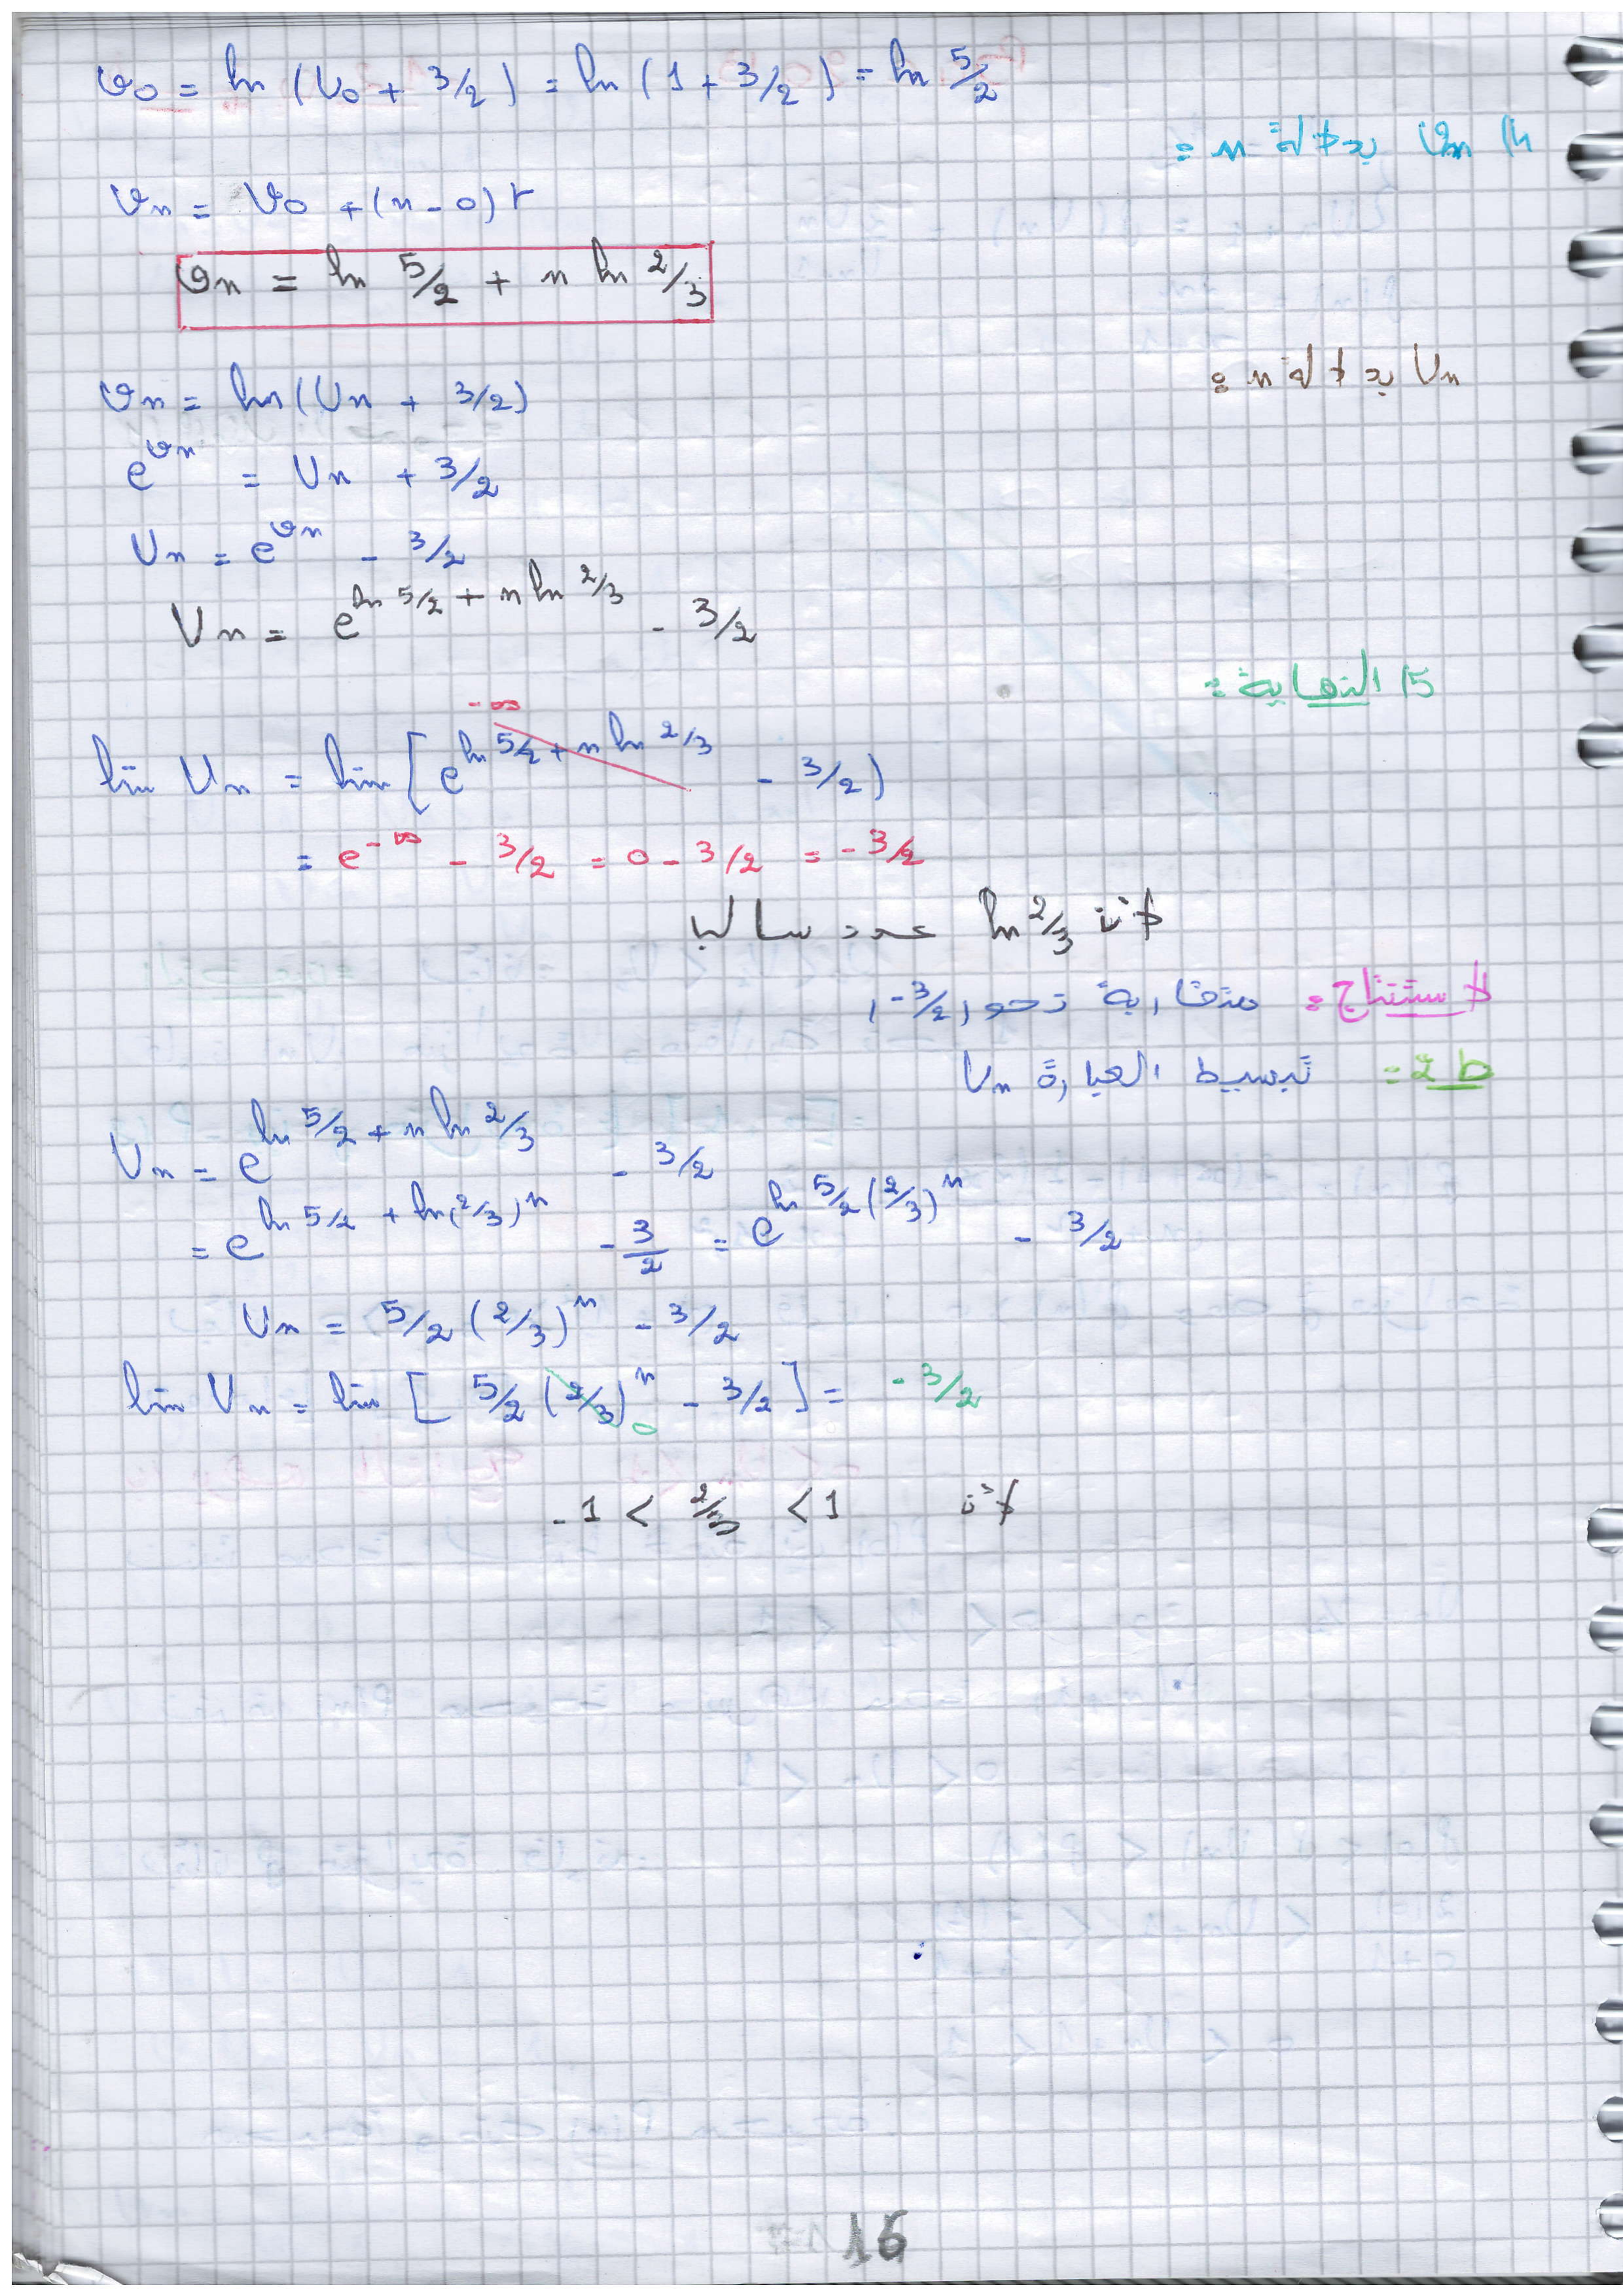 v₀ = ln (U₀ + 3/2) = ln (1 + 3/2) = ln 5/2
4) vn بدلالة n =
vn = v₀ + (n - 0) r
vn = ln 5/2 + n ln 2/3
Un بدلالة n =
vn = ln (Un + 3/2)
e^vn = Un + 3/2
Un = e^vn - 3/2
Un = e^(ln 5/2 + n ln 2/3) - 3/2
5) النهاية =
-∞
lim Un = lim [e^(ln 5/2 + n ln 2/3) - 3/2)
= e^-∞ - 3/2 = 0 - 3/2 = -3/2
لأن ln 2/3 عدد سالب
لاستنتاج = متقاربة نحو (-3/2)
ط2 = تبسيط العبارة Un
Un = e^(ln 5/2 + n ln 2/3) - 3/2
= e^(ln 5/2 + ln(2/3)^n) - 3/2 = e^(ln 5/2 (2/3)^n) - 3/2
Un = 5/2 (2/3)^n - 3/2
lim Un = lim [ 5/2 (2/3)^n - 3/2 ] = -3/2
0
لأن -1 < 2/3 < 1
16